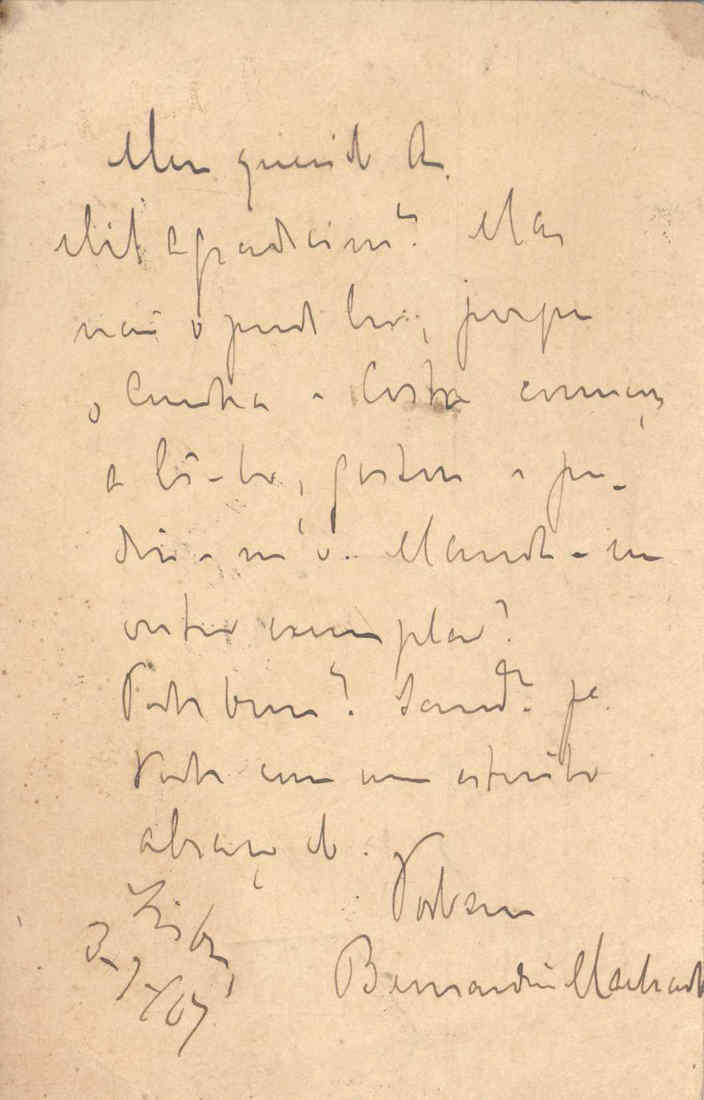 Meu querido A.
Mil agradecimtos. Mas
não o pude ler, porque
o Cunha e Costa começou
a lê-lo, gostou e pe-
diu-m'o. Mande-me
outro exemplar.
Todos bem? Saudes pa
todos com um estreito
abraço do
Bernardino Machado
Lisboa,